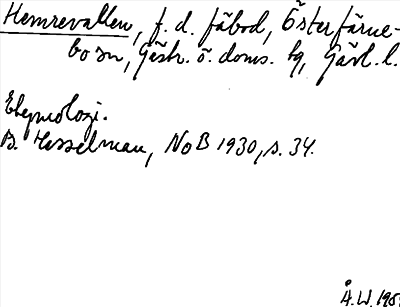 Hemrevallen, f. d. fäbod, Österfärne-
bo sn, Gästr. ö. doms. tg, Gävl. l.
Etymologi.
B. Hesselman, NoB 1930, s. 34.
Å.W. 195